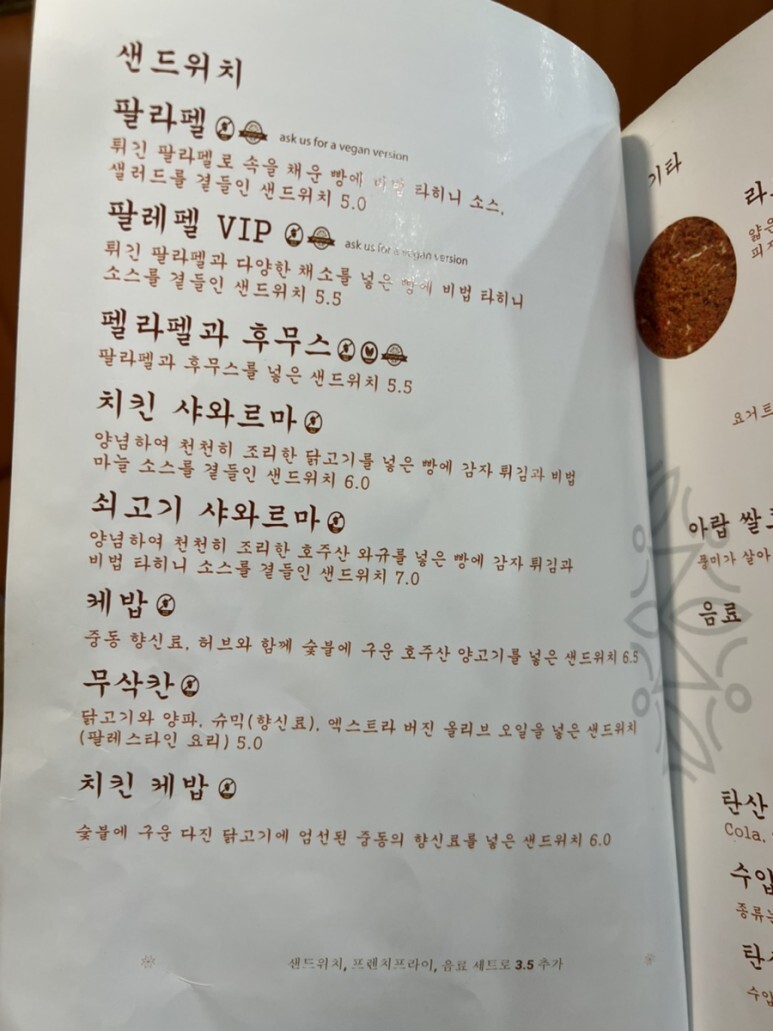 샌드위치
팔라펠 ask us for a vegan version
튀긴 팔라펠로 속을 채운 빵에 비법 타히니 소스,
샐러드를 곁들인 샌드위치 5.0
팔레펠 VIP ask us for a vegan version
튀긴 팔라펠과 다양한 채소를 넣은 빵에 비법 타히니
소스를 곁들인 샌드위치 5.5
펠라펠과 후무스
팔라펠과 후무스를 넣은 샌드위치 5.5
치킨 샤와르마
양념하여 천천히 조리한 닭고기를 넣은 빵에 감자 튀김과 비법
마늘 소스를 곁들인 샌드위치 6.0
쇠고기 샤와르마
양념하여 천천히 조리한 호주산 와규를 넣은 빵에 감자 튀김과
비법 타히니 소스를 곁들인 샌드위치 7.0
케밥
중동 향신료, 허브와 함께 숯불에 구운 호주산 양고기를 넣은 샌드위치 6.5
무삭칸
닭고기와 양파, 슈믹(향신료), 엑스트라 버진 올리브 오일을 넣은 샌드위치
(팔레스타인 요리) 5.0
치킨 케밥
숯불에 구운 다진 닭고기에 엄선된 중동의 향신료를 넣은 샌드위치 6.0
샌드위치, 프렌치프라이, 음료 세트로 3.5 추가
기타
얇은
요거트
아랍 쌀
풍미가 살아
음료
탄산
Cola,
수입
종류는
수입